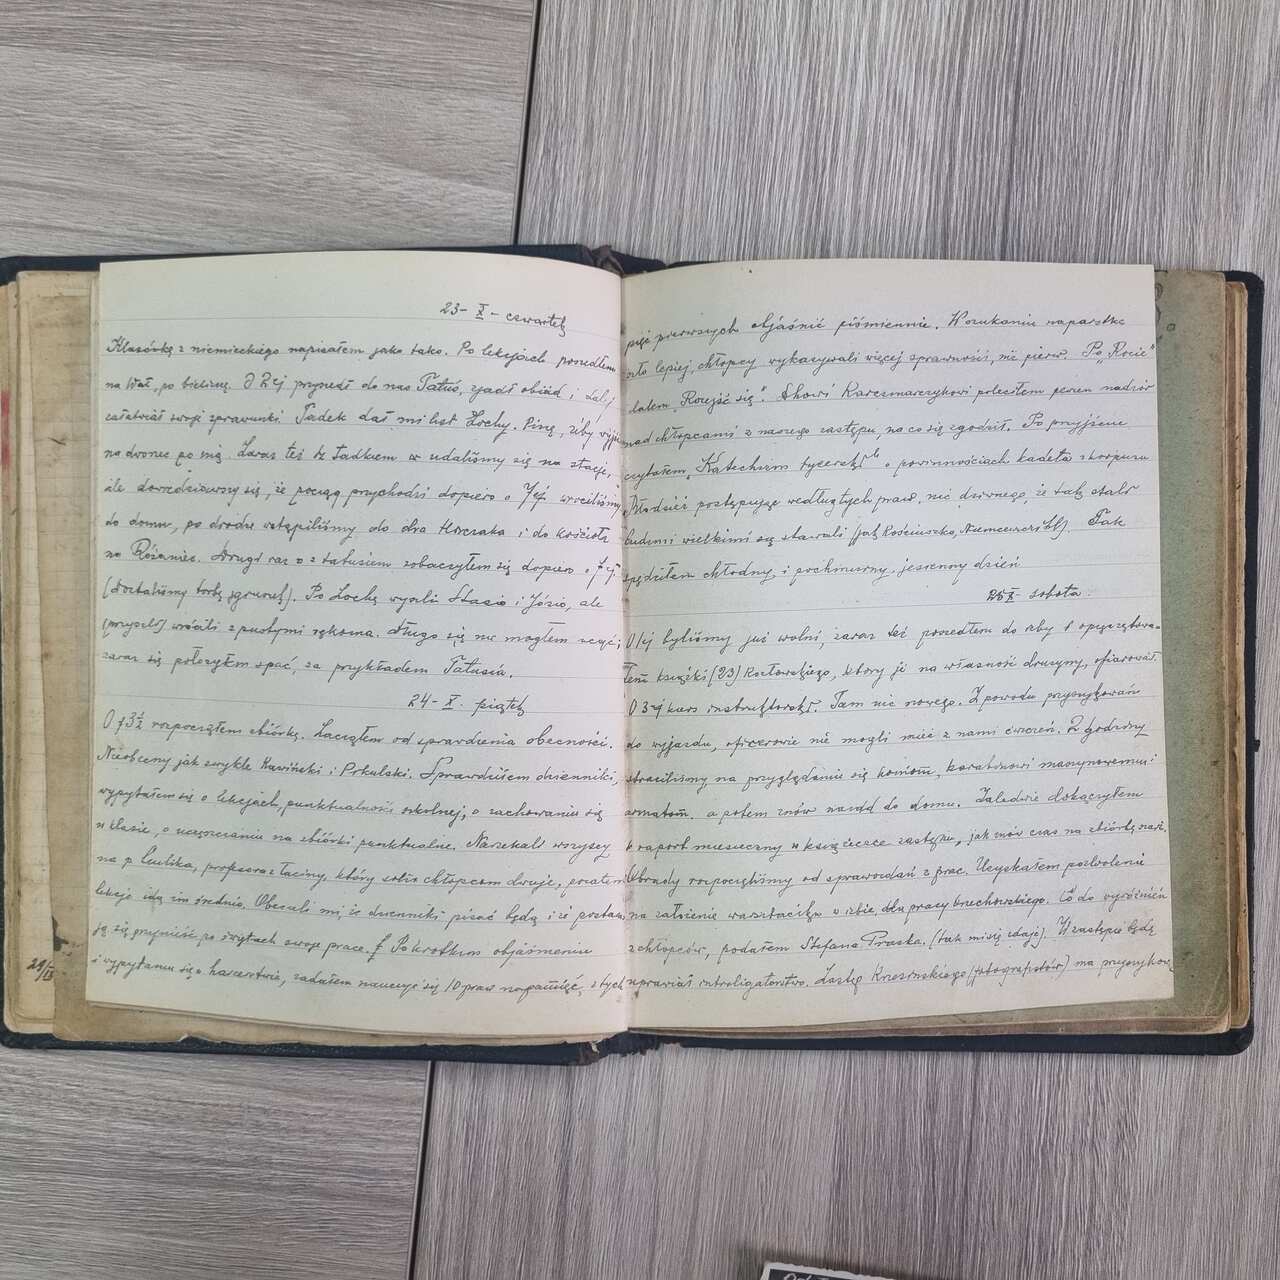 23 - X - czwartek
Klasówkę z niemieckiego napisałem jako tako. Po lekcjach poszedłem
na Wał, po bieliznę. O 2ej przyszedł do nas Tatuś, zjadł obiad i dalej
załatwiał swoje sprawunki. Tadek dał mi list Zochy. Pisze, żeby wyjść
na dworzec po nią. Zaraz też z Tadkiem udaliśmy się na stację,
ale dowiedziawszy się, że pociąg przychodzi dopiero o 7ej wróciliśmy
do domu, po drodze wstąpiliśmy do dra i do kościoła
na Różaniec. Drugi raz z tatusiem zobaczyłem się dopiero o 7ej
(dostaliśmy torbę gruszek). Po Zochę wyszli Stasio i Józio, ale
(przyszli) wrócili z pustymi rękoma. Długo się nie mogłem uczyć;
zaraz się położyłem spać, za przykładem Tatusia.
24 - X. piątek
O 3½ rozpocząłem zbiórkę. Zacząłem od sprawdzenia obecności.
Nieobecny jak zwykle Kawiński i Prkulski. Sprawdziłem dzienniki,
wypytałem się o lekcjach, punktualności szkolnej, o zachowaniu się
w klasie, o uczęszczaniu na zbiórki punktualnie. Narzekali wszyscy
na p. profesora z łaciny, który sobie chłopcom dwóje, poza tem
lekcje idą im średnio. Obiecali mi, że dzienniki pisać będą i że postara
ją się przynieść po świętach swoje prace. Po krótkim objaśnieniu
i wypytaniu się o harcerstwie, zadałem nauczyć się 10 praw na pamięć, z tych
pięć pierwszych objaśnić piśmiennie. W szukaniu naparstka
szło lepiej, chłopcy wykazywali więcej sprawności, niż pierw. Po „Rocie"
dałem „Rozejść się". Karczmarczykowi poleciłem pewien nadzór
nad chłopcami z naszego zastępu, na co się zgodził. Po przyjściu
czytałem „Katechizm rycerski" o powinnościach kadeta z korpusu
Młodzież postępując według tych praw, nic dziwnego, że tak stali
ludźmi wielkimi się stawali (jak Kościuszko, Niemcewicz itd). Tak
spędziłem chłodny i pochmurny jesienny dzień
25 X - sobota.
O 1ej byliśmy już wolni, zaraz też poszedłem do izby i opieczętowa-
łem książki (23) Kozłowskiego, który je na własność drużyny, ofiarował.
O 3ej kurs instruktorski. Tam nic nowego. Z powodu przygotowań
do wyjazdu, oficerowie nie mogli mieć z nami ćwiczeń. 2 godziny
straciliśmy na przyglądanie się koniom, karabinowi maszynowemu i
armatom, a potem znów nazad do domu. Zaledwie dokończyłem
raport miesięczny w książeczce zastępu, jak mów czas na zbiórkę nast.
Obrady rozpoczęliśmy od sprawozdań z prac. Uzyskałem pozwolenie
na założenie warsztaciku w izbie, dla pracy Orzechowskiego. Co do wyróżnień
z chłopców, podałem Stefana Praska, (tak mi się zdaje). W zastępie będę
uprawiał introligatorstwo. Zastęp Krzesińskiego (fotografistów) ma
29/IX